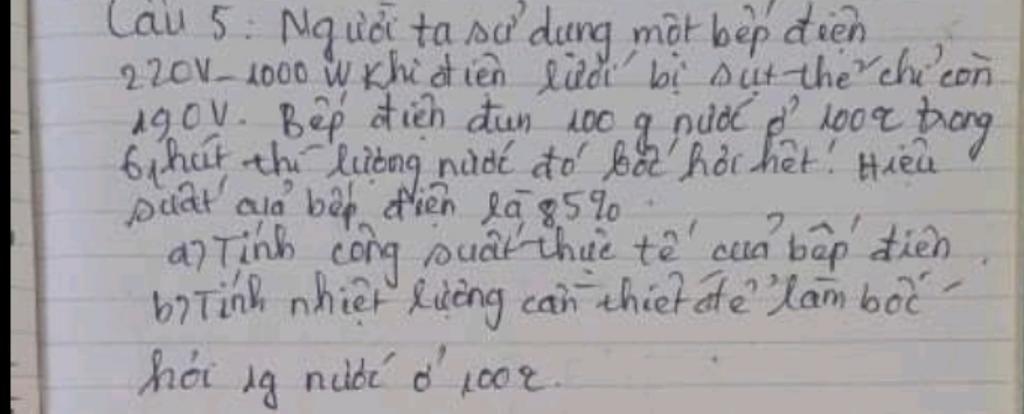 Câu 5: Người ta sử dụng một bếp điện
220V-1000W khi điện lưới bị sụt thế chỉ còn
190V. Bếp điện đun 100g nước ở 100℃ trong
6 phút thì lượng nước đó bốc hơi hết. Hiệu
suất của bếp điện là 85%.
a) Tính công suất thực tế của bếp điện.
b) Tính nhiệt lượng cần thiết để làm bốc
hơi 1g nước ở 100℃.